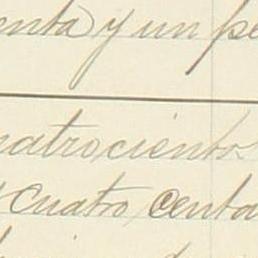 enta y un pe
uatrocientos
cuatro centa